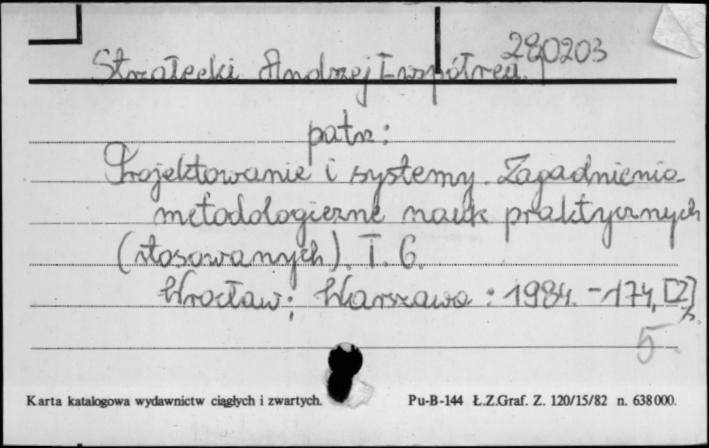 280203
Strzałecki Andrzej I współred.
patrz:
Projektowanie i systemy. Zagadnienia
metodologiczne nauk praktycznych
(stosowanych). T. 6.
Wrocław; Warszawa: 1984. - 174, [2] s.
5.
Karta katalogowa wydawnictw ciągłych i zwartych. Pu-B-144 Ł.Z.Graf. Z. 120/15/82 n. 638000.